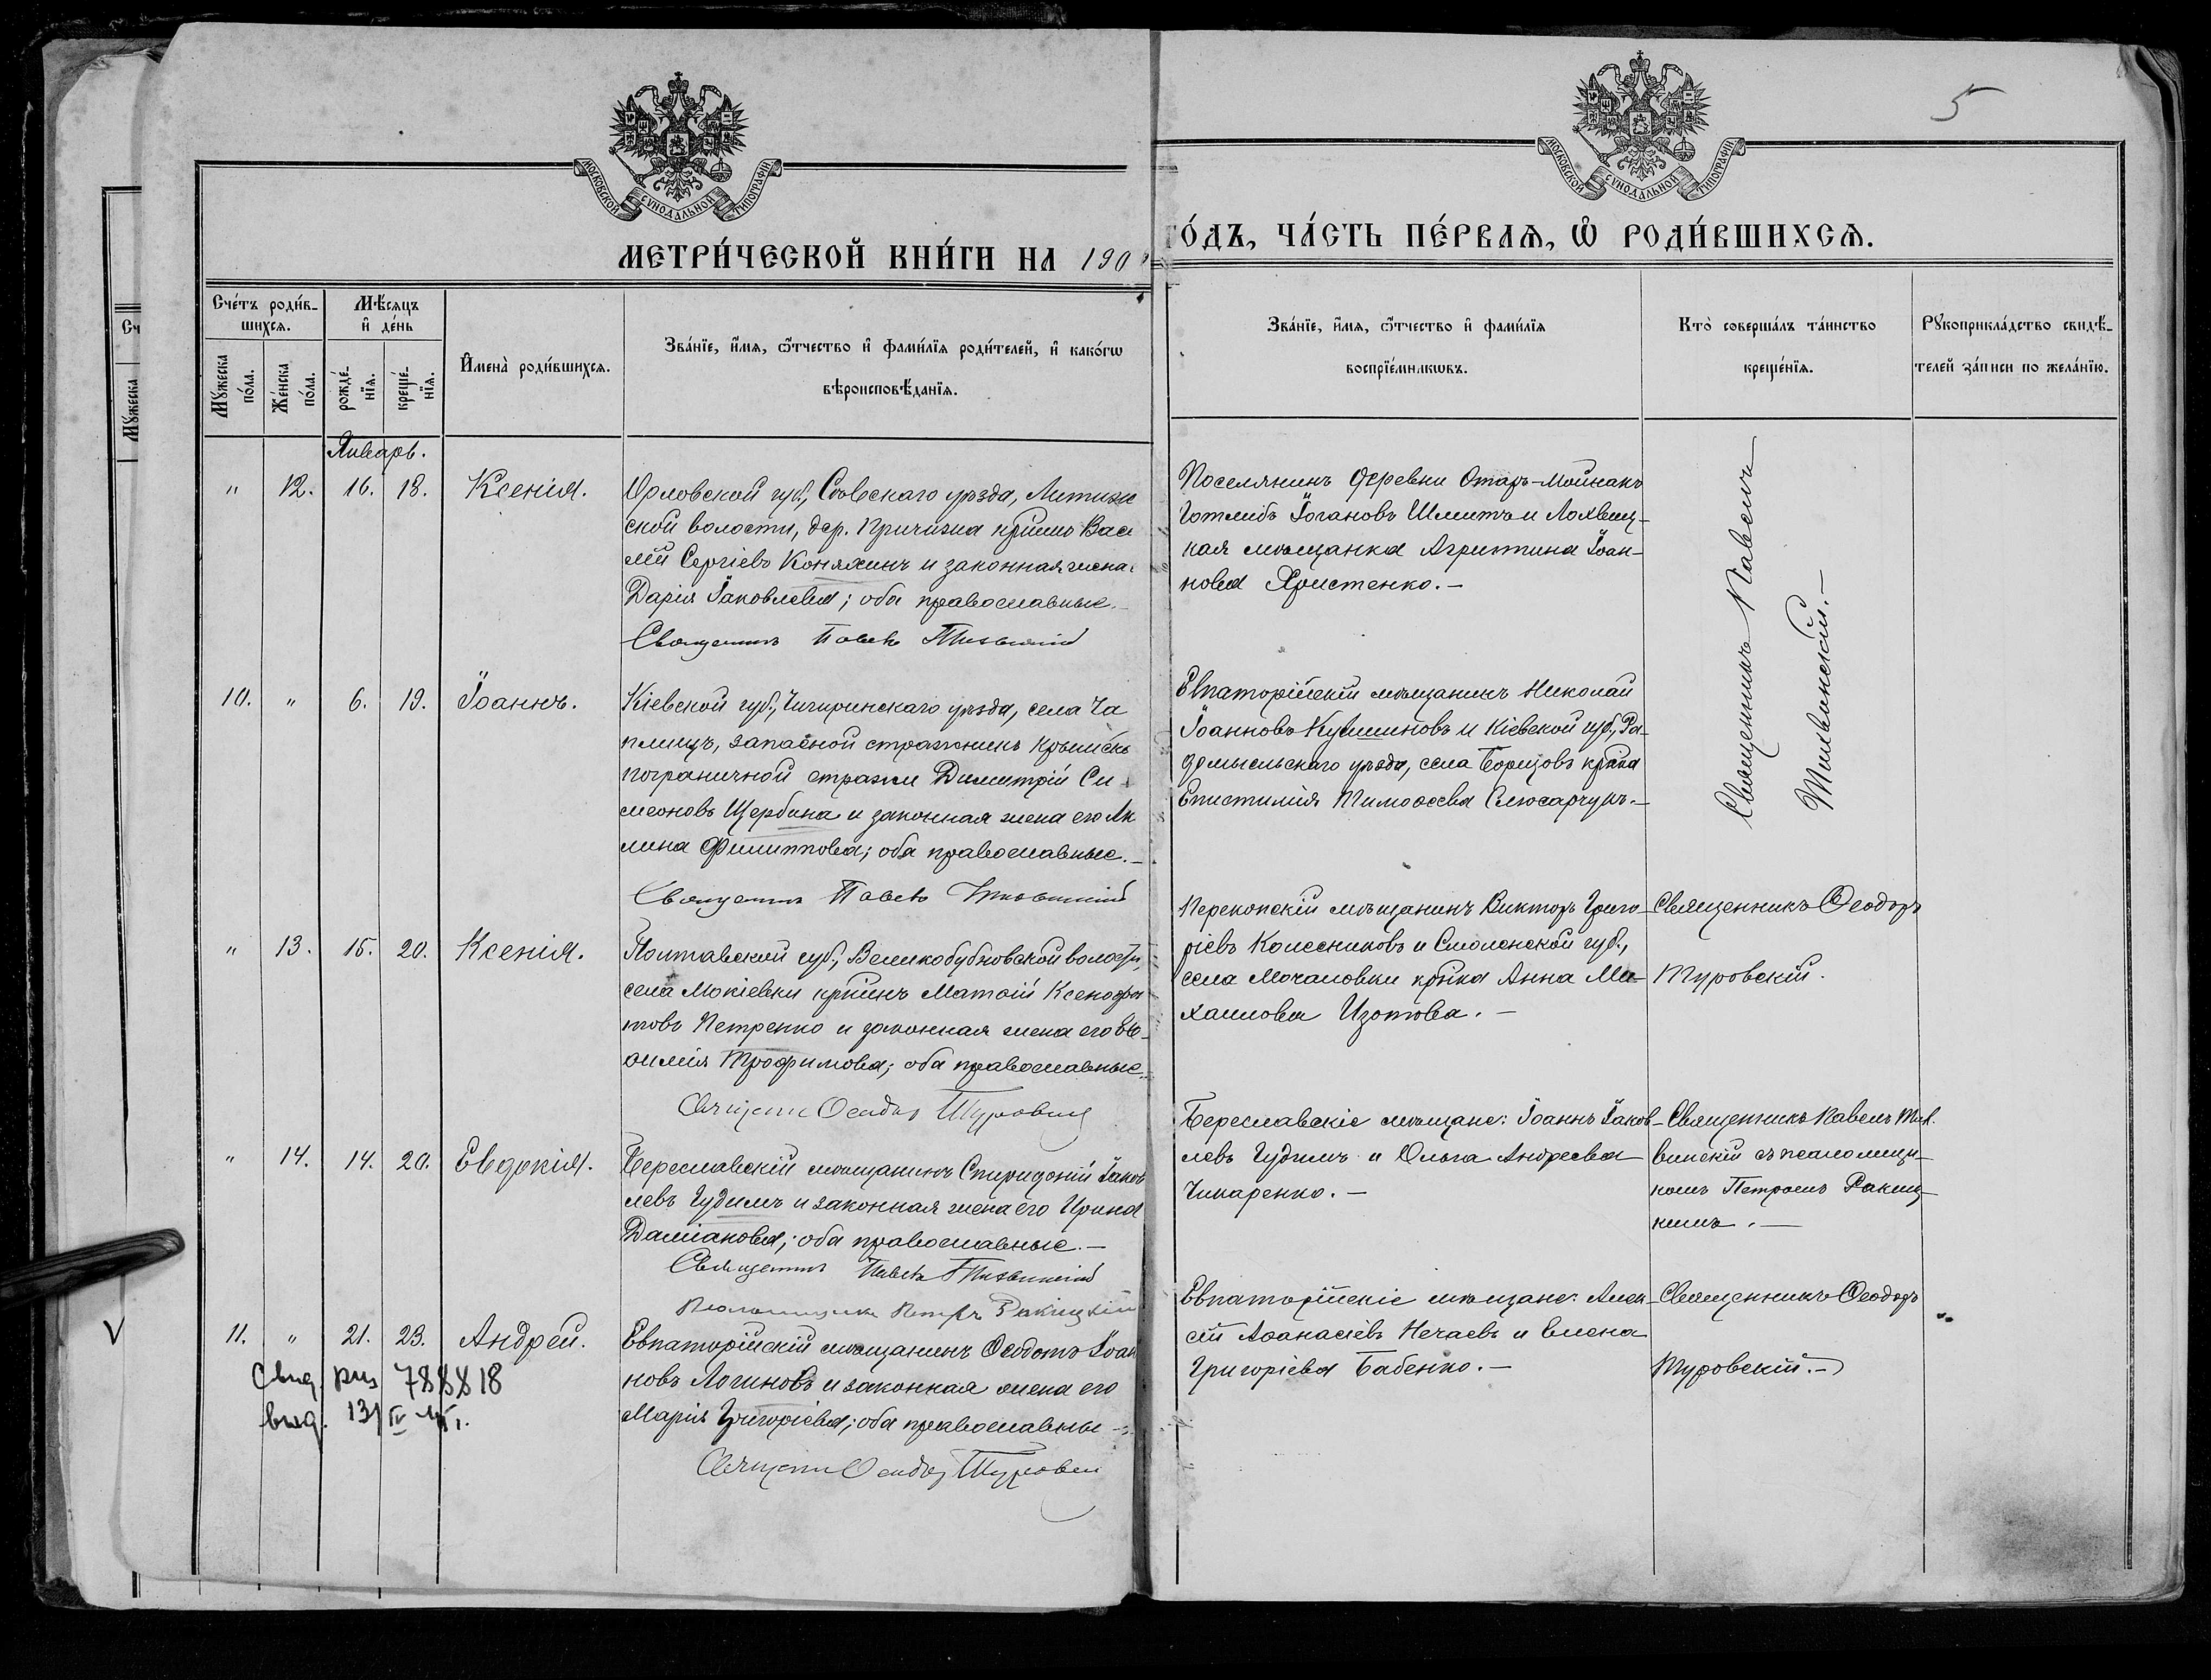 5
МОСКОВСКОЙ СѴНОДАЛЬНОЙ ТИПОГРАФІИ
МОСКОВСКОЙ СѴНОДАЛЬНОЙ ТИПОГРАФІИ
МЕТРИ́ЧЕСКОЙ КНИ́ГИ НА 190
ГО́ДЪ, ЧА́СТЬ ПЕ́РВАЯ, Ѡ РОДИ́ВШИХСЯ.
Сче́тъ роди́в-
шихся.
Му́жеска по́ла.
Же́нска по́ла.
Мѣ́сяцъ
и де́нь
рожде́-
нїя.
креще́-
нїя.
Имена̀ роди́вшихся.
Зва́нїе, и́мя, ѻ́тчество и фами́лїя роди́телей, и како́гѡ
вѣроисповѣ́данїя.
Зва́нїе, и́мя, ѻ́тчество и фами́лїя
воспрїе́мникѡвъ.
Кто̀ соверша́лъ та́инство
креще́нїя.
Рꙋкоприкла́дство свидѣ́-
телей за́писи по жела́нїю.
Январь.
" 12. 16. 18. Ксенія.
Орловской губ., Сѣвскаго уѣзда, Литиж
ской волости, дер. Причижа кр̃нинъ Васи
лій Сергіевъ Коняхинъ и законная жена
Дарія Іаковлева; оба православные.
Священникъ Павелъ Тихвинскій
Поселянинъ деревни Отаръ-Мойнакъ
Готлибъ Іогановъ Шмитъ и Лохвиц-
кая мѣщанка Агриппина Іоан-
нова Христенко.-
Священникъ Павелъ
Тихвинскій.-
10. " 6. 19. Іоаннъ.
Кіевской губ., Чигиринскаго уѣзда, села Ча
плищъ, запасной стражникъ Крымской
пограничной стражи Димитрій Си-
меоновъ Щербина и законная жена его Аки
лина Филиппова; оба православные.-
Священникъ Павелъ Тихвинскій
Евпаторійскій мѣщанинъ Николай
Іоанновъ Кувшиновъ и Кіевской губ., Ра-
домысльскаго уѣзда, села Борщовъ кр̃нка
Епистимія Тимоѳеева Слюсарчукъ.-
" 13. 15. 20. Ксенія.
Полтавской губ., Великобубновской волости,
села Мокіевки кр̃нинъ Матѳій Ксенофон
товъ Петренко и законная жена его Ев-
ѳимія Трофимова; оба православные.
Священникъ Ѳеодоръ Туровскій
Перекопскій мѣщанинъ Викторъ Григо-
ріевъ Колесниковъ и Смоленской губ.,
села Мочаловки кр̃нка Анна Ми-
хаилова Изотова.-
Священникъ Ѳеодоръ
Туровскій.
" 14. 14. 20. Евдокія.
Бериславскій мѣщанинъ Спиридоній Іаков
левъ Гудимъ и законная жена его Ирина
Даміанова; оба православные.-
Священникъ Павелъ Тихвинскій
Псаломщикъ Петръ Ракицкій
Бериславскіе мѣщане: Іоаннъ Іаков-
левъ Гудимъ и Ольга Андреева
Чикаренко.-
Священникъ Павелъ Тих
винскій съ псаломщи-
комъ Петромъ Ракиц-
кимъ.-
11. " 21. 23. Андрей.
Евпаторійскій мѣщанинъ Ѳеодотъ Іоан
новъ Логиновъ и законная жена его
Марія Григоріева; оба православны -
Священникъ Ѳеодоръ Туровскій
Евпаторійскіе мѣщане: Алек-
сій Аѳанасіевъ Нечаевъ и Елена
Григоріева Бабенко.-
Священникъ Ѳеодоръ
Туровскій.-
V
выд.